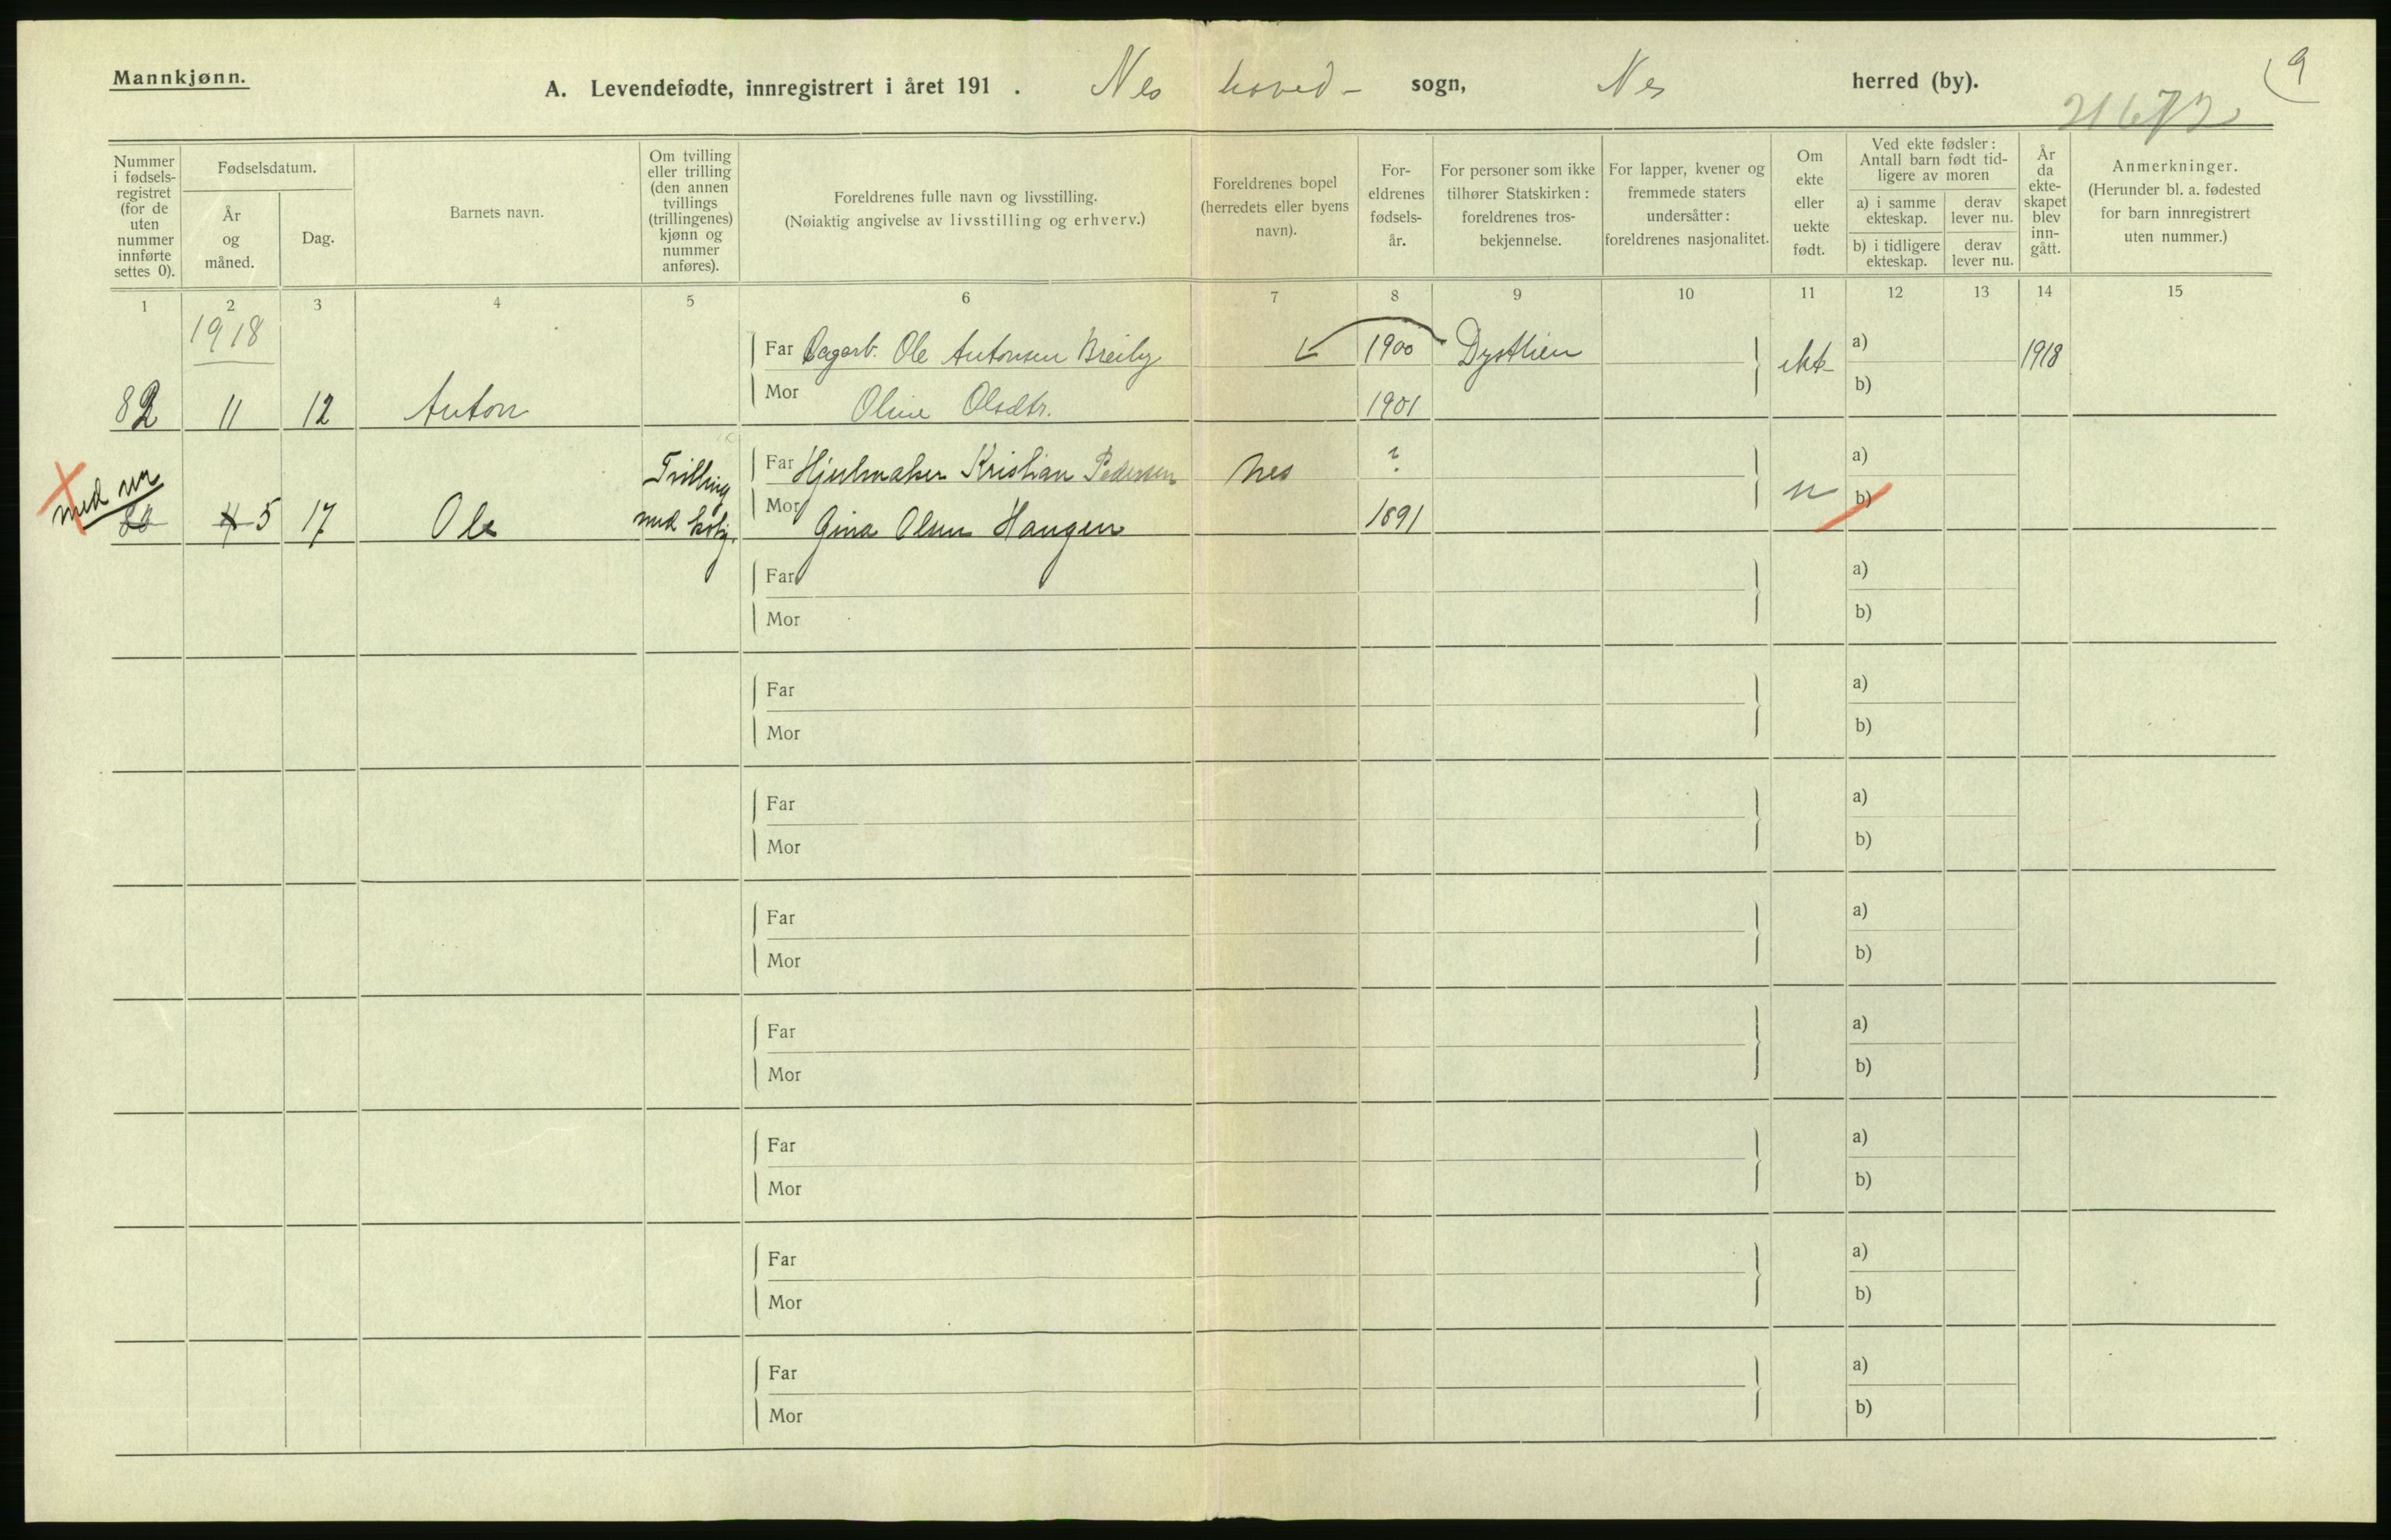 Mannkjønn.
A. Levendefødte, innregistrert i året 191 . Nes hoved- sogn, Nes herred (by).
9
21672
Nummer i fødselsregistret (for de uten nummer innførte settes 0).
Fødselsdatum.
År og måned.
Dag.
Barnets navn.
Om tvilling eller trilling (den annen tvillings (trillingenes) kjønn og nummer anføres).
Foreldrenes fulle navn og livsstilling.
(Nøiaktig angivelse av livsstilling og erhverv.)
Foreldrenes bopel (herredets eller byens navn).
Foreldrenes fødselsår.
For personer som ikke tilhører Statskirken: foreldrenes trosbekjennelse.
For lapper, kvener og fremmede staters undersåtter: foreldrenes nasjonalitet.
Om ekte eller uekte født.
Ved ekte fødsler: Antall barn født tidligere av moren
a) i samme ekteskap.
derav lever nu.
b) i tidligere ekteskap.
derav lever nu.
År da ekteskapet blev inngått.
Anmerkninger.
(Herunder bl. a. fødested for barn innregistrert uten nummer.)
1 2 3 4 5 6 7 8 9 10 11 12 13 14 15
1918
Far Dagarb. Ole Antonsen Breiby 1900 Dysthien ekte a) 1918
82 11 12 Anton Mor Oline Olsdtr. 1901 b)
Trilling Far Hjulmaker Kristian Pedersen Nes ? a)
med nr 5 17 Ole med Mor Gina Olsen Haugen 1891 u b)
Far a)
Mor b)
Far a)
Mor b)
Far a)
Mor b)
Far a)
Mor b)
Far a)
Mor b)
Far a)
Mor b)
Far a)
Mor b)
Far a)
Mor b)